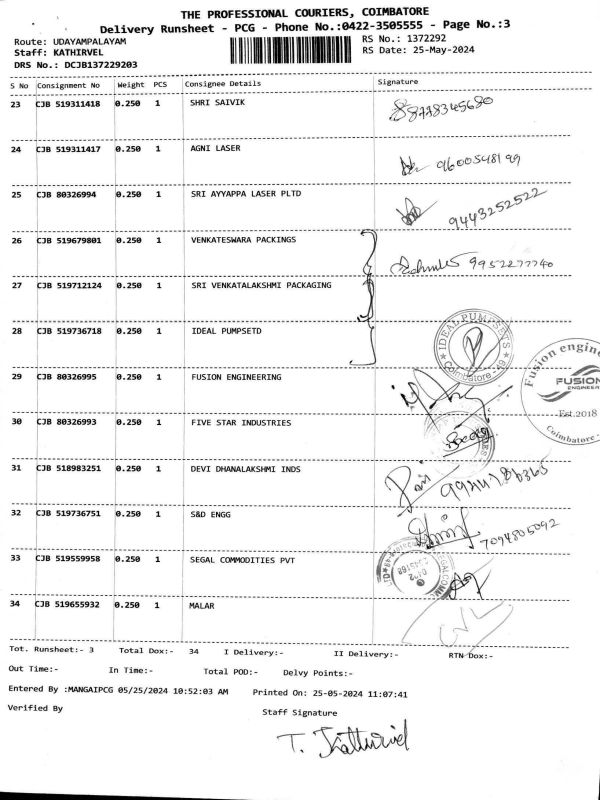 THE PROFESSIONAL COURIERS, COIMBATORE
Delivery Runsheet - PCG - Phone No.:0422-3505555 - Page No.:3
Route: UDAYAMPALAYAM
RS No.: 1372292
Staff: KATHIRVEL
RS Date: 25-May-2024
DRS No.: DCJB137229203
S No Consignment No Weight PCS Consignee Details Signature
23 CJB 519311418 0.250 1 SHRI SAIVIK
24 CJB 519311417 0.250 1 AGNI LASER 9600548199
25 CJB 80326994 0.250 1 SRI AYYAPPA LASER PLTD 9443252522
26 CJB 519679801 0.250 1 VENKATESWARA PACKINGS 9952277740
27 CJB 519712124 0.250 1 SRI VENKATALAKSHMI PACKAGING
28 CJB 519736718 0.250 1 IDEAL PUMPSETD IDEAL PUMPSETS Coimbatore
29 CJB 80326995 0.250 1 FUSION ENGINEERING Fusion engine FUSION ENGINEER Est.2018 Coimbatore
30 CJB 80326993 0.250 1 FIVE STAR INDUSTRIES
31 CJB 518983251 0.250 1 DEVI DHANALAKSHMI INDS
32 CJB 519736751 0.250 1 S&D ENGG 7094805092
33 CJB 519559958 0.250 1 SEGAL COMMODITIES PVT
34 CJB 519655932 0.250 1 MALAR
Tot. Runsheet:- 3 Total Dox:- 34 I Delivery:- II Delivery:- RTN Dox:-
Out Time:- In Time:- Total POD:- Delvy Points:-
Entered By :MANGAIPCG 05/25/2024 10:52:03 AM Printed On: 25-05-2024 11:07:41
Verified By Staff Signature
T. Kathirvel